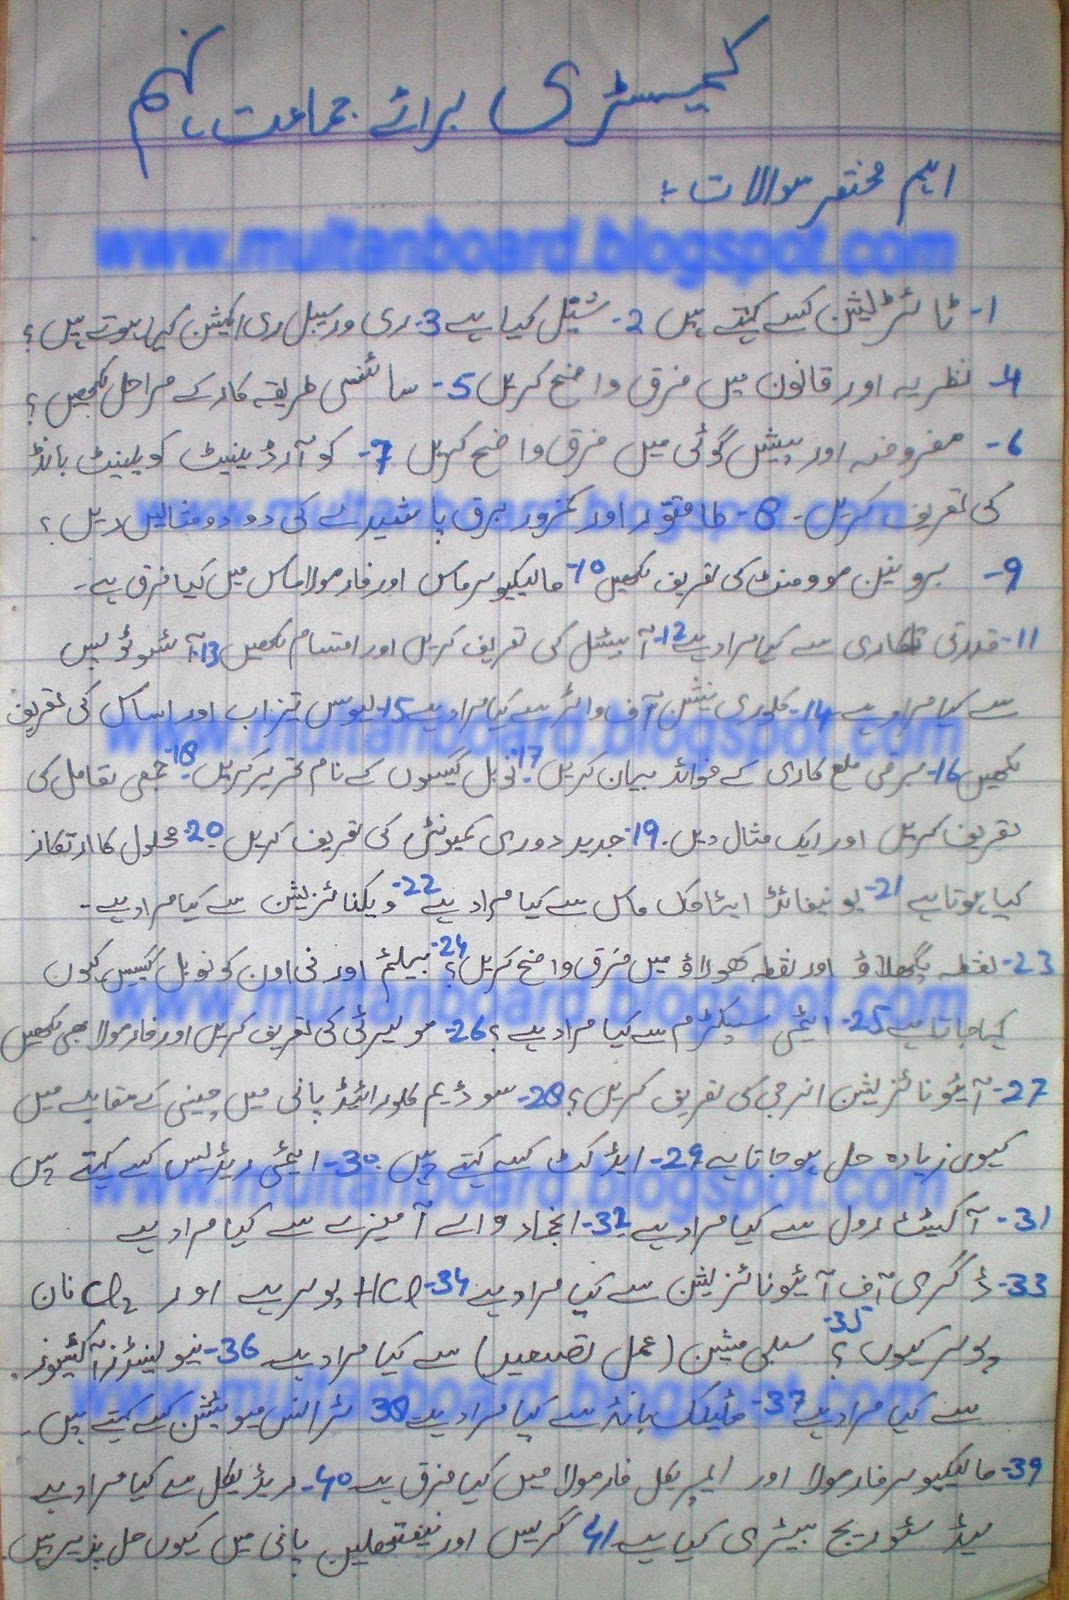 کیمسٹری برائے جماعت نہم
اہم مختصر سوالات :
www.multanboard.blogspot.com
1- ٹائٹریشن کسے کہتے ہیں 2- سٹیل کیا ہے 3- ری ورسیبل ری ایکشن کیا ہوتے ہیں ؟
4- نظریہ اور قانون میں فرق واضح کریں 5- سائنسی طریقہ کار کے مراحل لکھیں ؟
6- مفروضہ اور پیشن گوئی میں فرق واضح کریں 7- کوآرڈینیٹ کوویلنٹ بانڈ
www.multanboard.blogspot.com
کی تعریف کریں - 8- طاقتور اور کمزور برق پاشیدے کی دو دو مثالیں دیں ؟
9- بروینن موومنٹ کی تعریف لکھیں 10- مالیکیولر ماس اور فارمولا ماس میں کیا فرق ہے -
11- قدرتی تابکاری سے کیا مراد ہے 12- آربیٹل کی تعریف کریں اور اقسام لکھیں 13- آئسوٹوپس
سے کیا مراد ہے 14- کلوری نیشن آف واٹر سے کیا مراد ہے 15- لیوس تیزاب اور اساس کی تعریف
www.multanboard.blogspot.com
لکھیں 16- برقی ملع کاری کے فوائد بیان کریں 17- نوبل گیسوں کے نام تحریر کریں 18- جمعی تعامل کی
تعریف کریں اور ایک مثال دیں . 19- جدید دوری کی تعریف کریں 20- محلول کا ارتکاز
کیا ہوتا ہے 21- یونیفائڈ اٹامک ماس سے کیا مراد ہے 22- ویلکنائزیشن سے کیا مراد ہے -
23- نقطہ پگھلاؤ اور نقطہ کھولاؤ میں فرق واضح کریں ؟ 24- ہیلیئم اور نی اون کو نوبل گیسیں کیوں
www.multanboard.blogspot.com
کہا جاتا ہے 25- ایٹمی سپکٹرم سے کیا مراد ہے ؟ 26- مولیرٹی کی تعریف کریں اور فارمولا بھی لکھیں
27- آئیونائزیشن انرجی کی تعریف کریں ؟ 28- سوڈیم کلورائیڈ پانی میں چینی کے مقابلے میں
کیوں زیادہ حل ہو جاتا ہے 29- ایڈکٹ کسے کہتے ہیں 30- ایٹمی ریڈیس کسے کہتے ہیں
www.multanboard.blogspot.com
31- آکٹیٹ رول سے کیا مراد ہے 32- انجماد والے آمیزے سے کیا مراد ہے
33- ڈگری آف آئیونائزیشن سے کیا مراد ہے 34- HCl پولر ہے اور Cl2 نان
پولر کیوں ؟ 35- سبلی میشن (عمل تصعید) سے کیا مراد ہے 36-
www.multanboard.blogspot.com
سے کیا مراد ہے 37- مٹیلک بانڈ سے کیا مراد ہے 38 ٹرانس میوٹیشن کسے کہتے ہیں -
39- مالیکیولر فارمولا اور ایمپریکل فارمولا میں کیا فرق ہے 40- ریڈیکل سے کیا مراد ہے
لیڈ سٹوریج بیٹری کیا ہے 41 گریس اور نیفتھلین پانی میں کیوں حل پذیر ہیں